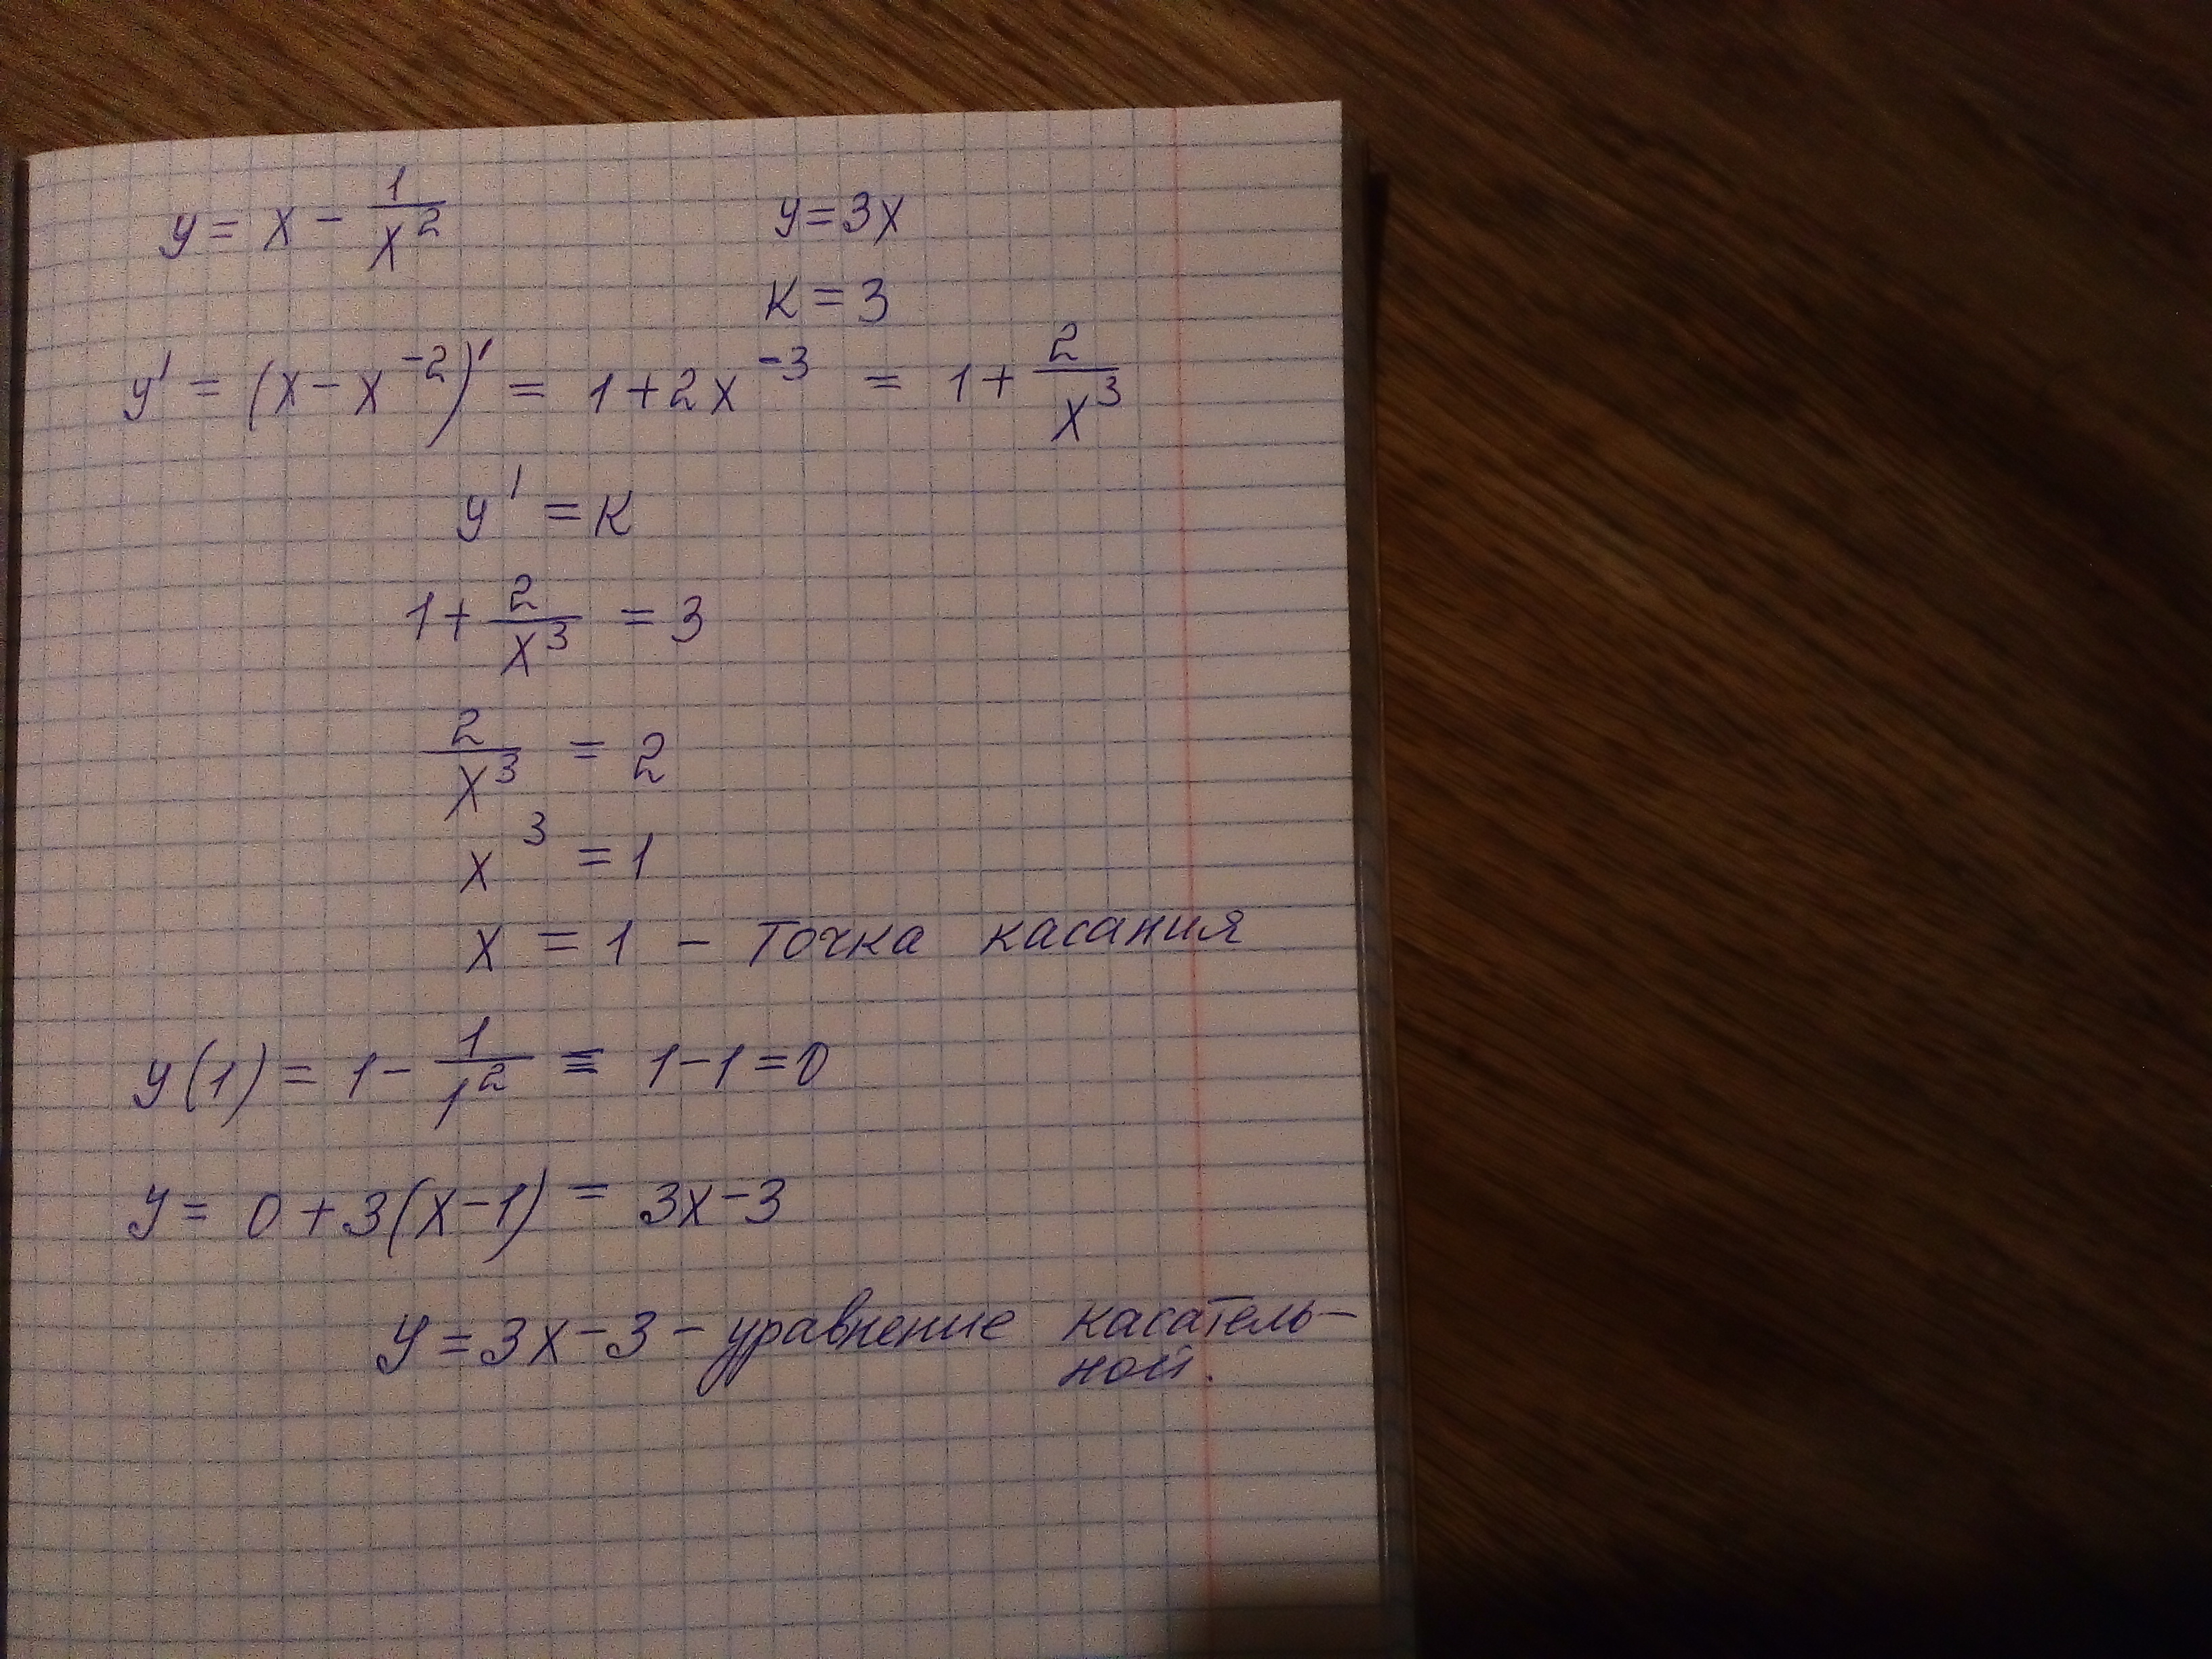 y = x - 1/x²
y = 3x
K = 3
y' = (x - x⁻²)' = 1 + 2x⁻³ = 1 + 2/x³
y' = K
1 + 2/x³ = 3
2/x³ = 2
x³ = 1
x = 1 - точка касания
y(1) = 1 - 1/1² = 1 - 1 = 0
y = 0 + 3(x - 1) = 3x - 3
y = 3x - 3 - уравнение касатель-
ной.